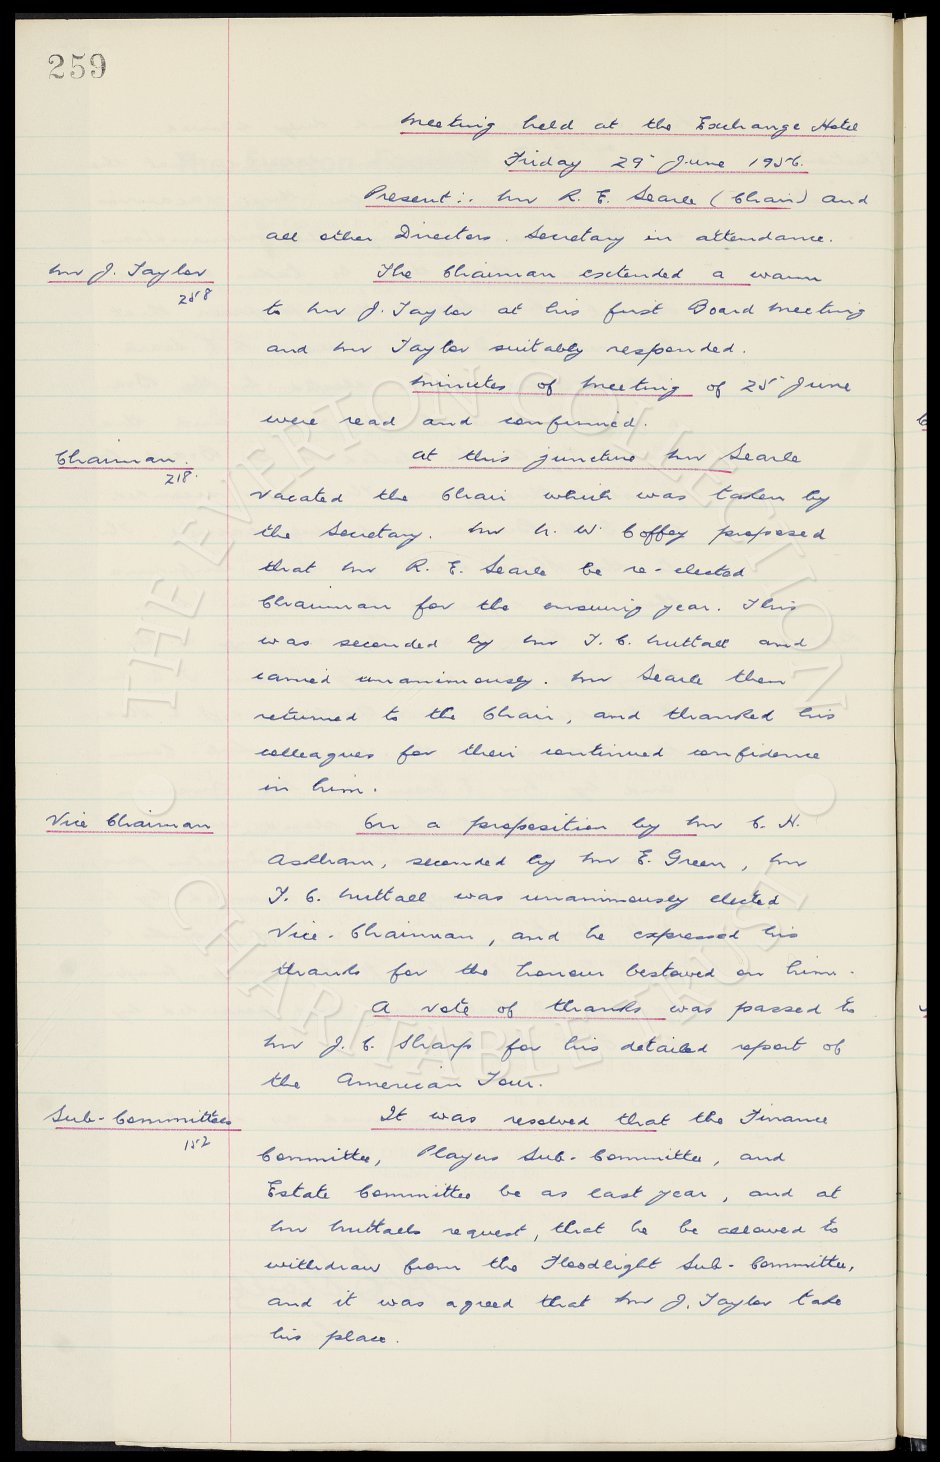 259
Meeting held at the Exchange Hotel
Friday 29 June 1956.
Present:. Mr R. E. Searle (Chair) and
all other Directors. Secretary in attendance.
Mr J. Taylor
258
The Chairman extended a warm
to Mr J. Taylor at his first Board Meeting
and Mr Taylor suitably responded.
Minutes of Meeting of 25 June
were read and confirmed.
Chairman.
218.
At this juncture Mr Searle
vacated the Chair which was taken by
the Secretary. Mr N. W. Coffey proposed
that Mr R. E. Searle be re-elected
Chairman for the ensuing year. This
was seconded by Mr T. C. Nuttall and
carried unanimously. Mr Searle then
returned to the Chair, and thanked his
colleagues for their continued confidence
in him.
Vice Chairman
On a proposition by Mr C. H.
Askham, seconded by Mr E. Green, Mr
T. C. Nuttall was unanimously elected
Vice-Chairman, and he expressed his
thanks for the honour bestowed on him.
A vote of thanks was passed to
Mr J. C. Sharp for his detailed report of
the American Tour.
Sub-Committees
152
It was resolved that the Finance
Committee, Players Sub-Committee, and
Estate Committee be as last year, and at
Mr Nuttalls request, that he be allowed to
withdraw from the Floodlight Sub-Committee,
and it was agreed that Mr J. Taylor take
his place.
THE EVERTON COLLECTION
CHARITABLE TRUST